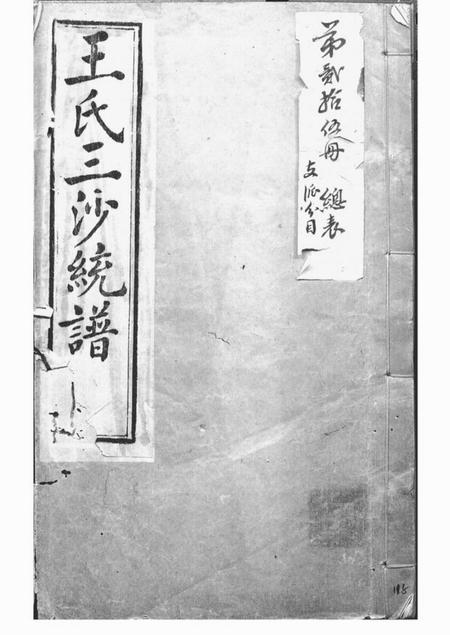 第貳拾伍冊 總表
支派分目
王氏三沙統譜